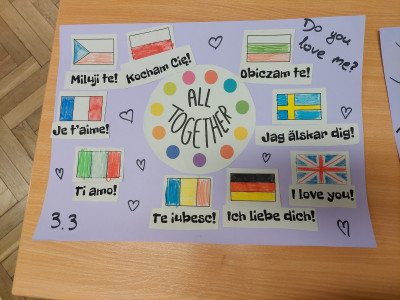 Do you
love me?
Miluji te!
Kocham Cię!
Obiczam te!
Je t'aime!
ALL
TOGETHER
Jag älskar dig!
Ti amo!
Te iubesc!
Ich liebe dich!
I love you!
3.3